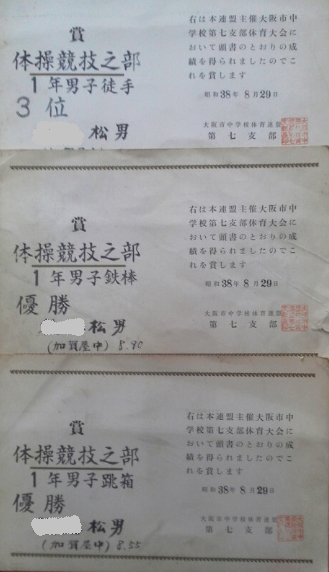 賞
体操競技之部
1年男子徒手
3位
松男
右は本連盟主催大阪市中
学校第七支部体育大会に
おいて頭書のとおりの成
績を得られましたのでこ
れを賞します
昭和38年8月29日
大阪市中学校体育連盟
第七支部
賞
体操競技之部
1年男子鉄棒
優勝
松男
(加賀屋中) 8.90
右は本連盟主催大阪市中
学校第七支部体育大会に
おいて頭書のとおりの成
績を得られましたのでこ
れを賞します
昭和38年8月29日
大阪市中学校体育連盟
第七支部
賞
体操競技之部
1年男子跳箱
優勝
松男
(加賀屋中) 8.55
右は本連盟主催大阪市中
学校第七支部体育大会に
おいて頭書のとおりの成
績を得られましたのでこ
れを賞します
昭和38年8月29日
大阪市中学校体育連盟
第七支部